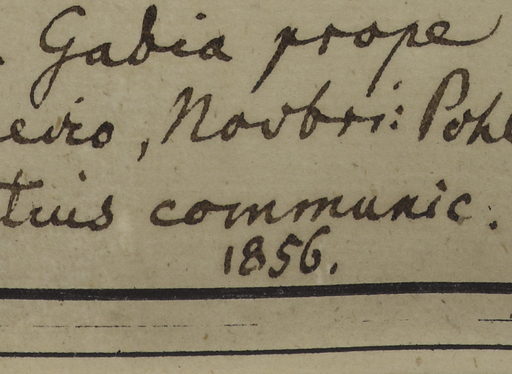 . Gabia prope
eiro, Novbri: Pohl
tius communic.
1856.